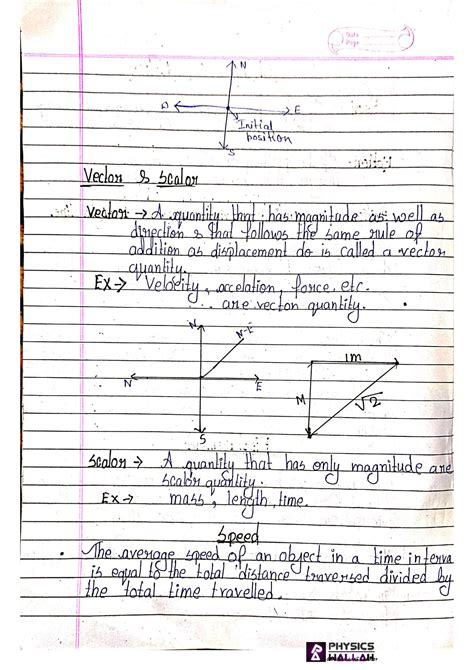 Date
Page
N
W E
Initial
position
S
Vector & Scalor
Vector → A quantity that has magnitude as well as
direction & that follows the same rule of
addition as displacement do is called a vector
quantity.
Ex → Velocity, accelation, force, etc.
are vector quantity.
N N-E
1m
N E
M √2
S
Scalor → A quantity that has only magnitude are
scalor quantity.
Ex → mass, length, time.
Speed
• The average speed of an object in a time interva
is equal to the total distance traversed divided by
the total time travelled.
PHYSICS
WALLAH